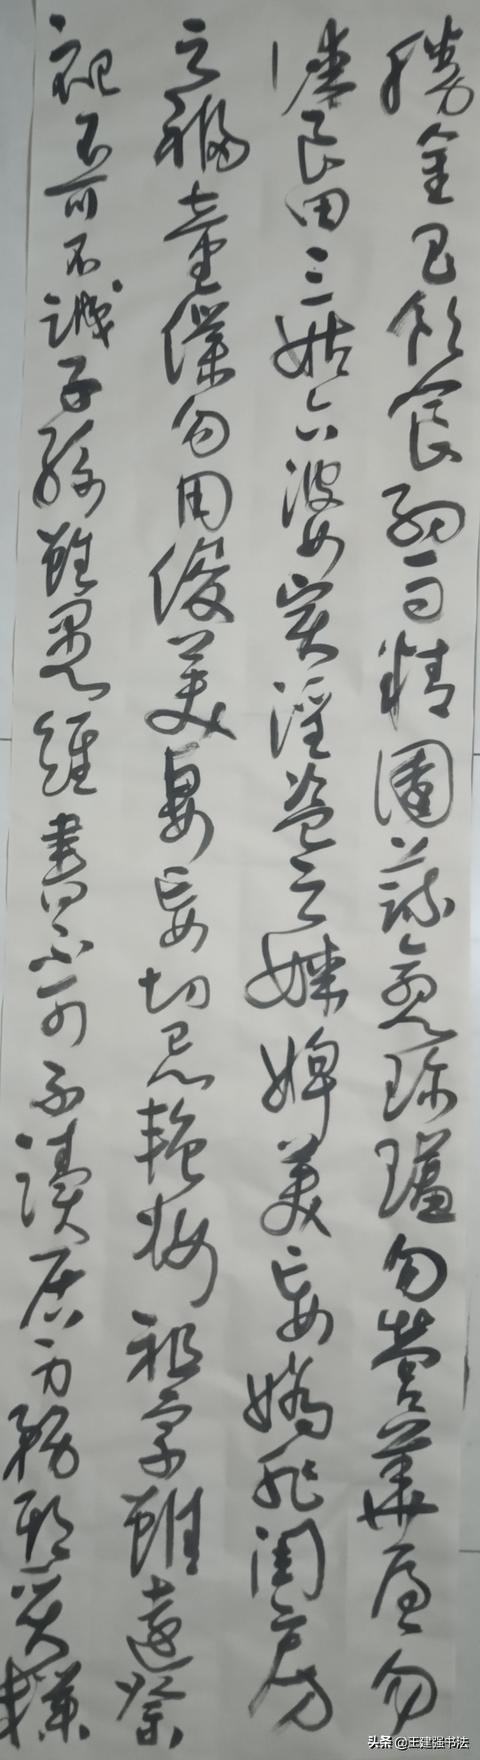 勝金玉飲食約而精園蔬愈珍饈勿營華屋勿
謀良田三姑六婆實淫盜之媒婢美妾嬌非閨房
之福童僕勿用俊美妻妾切忌艷妝祖宗雖遠祭
祀不可不誠子孫雖愚經書不可不讀居身務期質樸
头条 @王建强书法